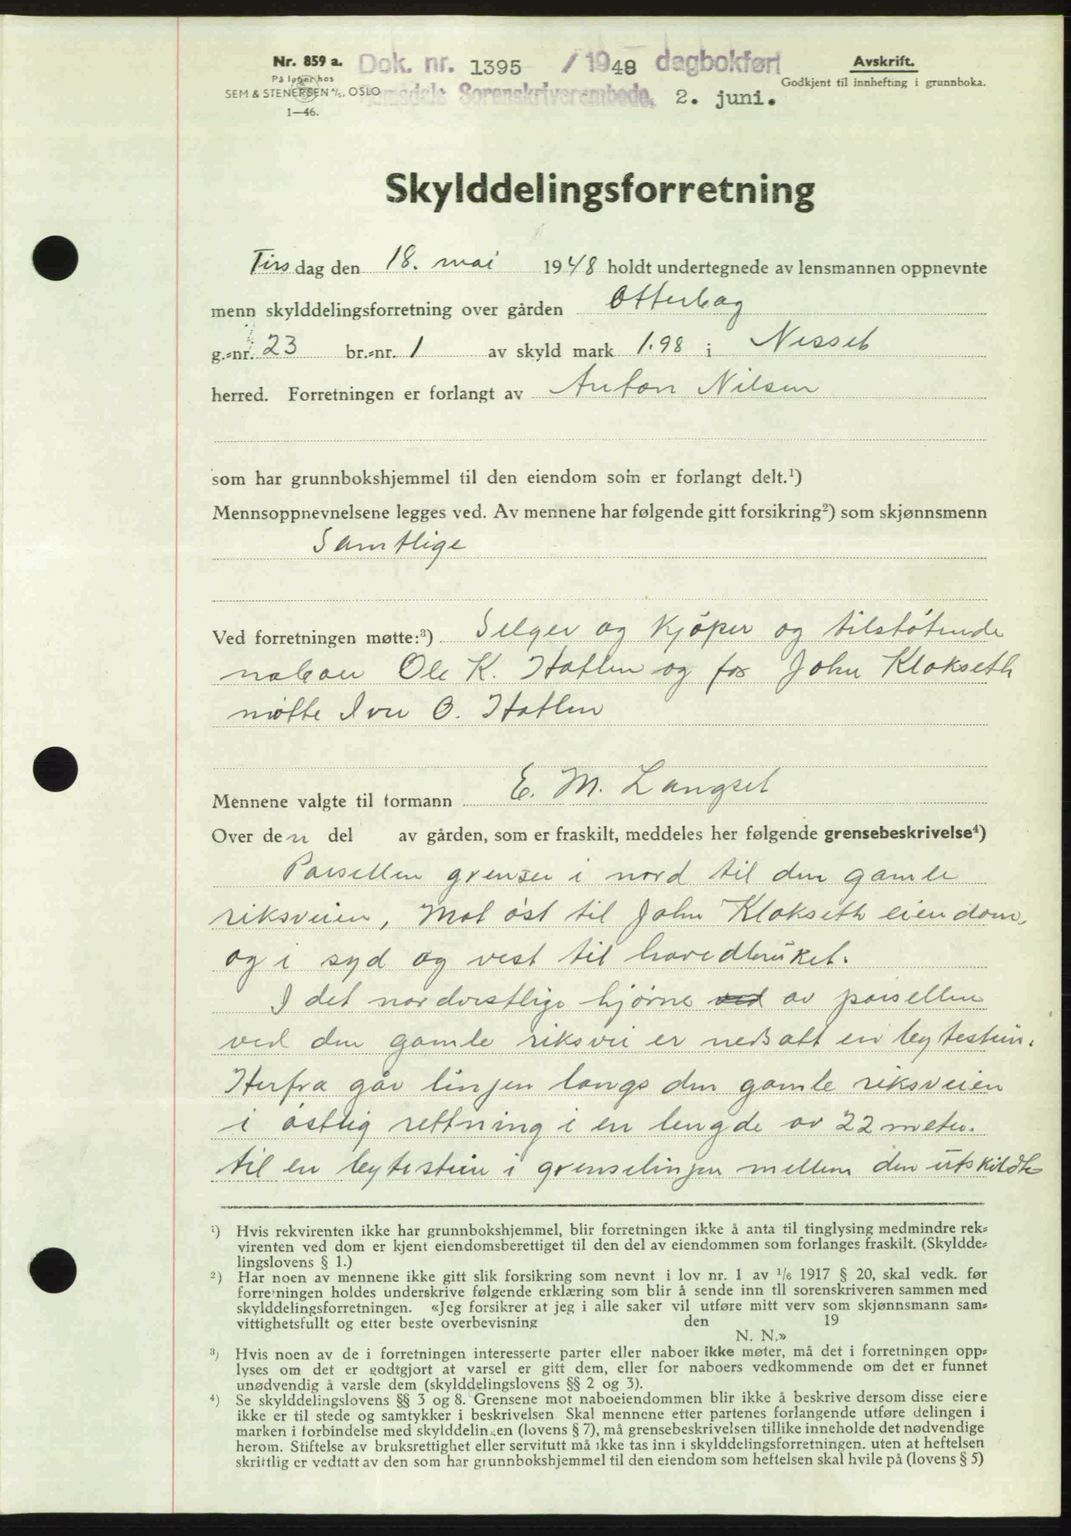 Nr. 859 a.
På lager hos
SEM & STENERSEN A/S, OSLO
1—46.
Dok. nr. 1395 / 1948 dagbokført
Romsdals Sorenskriverembede, 2. juni.
Avskrift.
Godkjent til innhefting i grunnboka.
Skylddelingsforretning
Tirsdag den 18. mai 1948 holdt undertegnede av lensmannen oppnevnte
menn skylddelingsforretning over gården Otterbog
g.=nr. 23 br.=nr. 1 av skyld mark 1.98 i Nesset
herred. Forretningen er forlangt av Anton Nilsen
som har grunnbokshjemmel til den eiendom som er forlangt delt.¹)
Mennsoppnevnelsene legges ved. Av mennene har følgende gitt forsikring²) som skjønnsmenn
Samtlige
Ved forretningen møtte:³) Selger og kjöper og tilstötende
naboer Ole K. Hatlen og for John Klokseth
møtte Iver O. Hatlen
Mennene valgte til formann E. M. Langset
Over den del av gården, som er fraskilt, meddeles her følgende grensebeskrivelse⁴)
Parsellen grenser i nord til den gamle
riksveien, Mot öst til John Klokseth eiendom,
og i syd og vest til hovedbruket.
I det nordvestlige hjørne ved av parsellen
ved den gamle riksvei er nedsatt en bytestein.
Herfra går linjen langs den gamle riksveien
i östlig rettning i en lengde av 22 meter.
til en bytestein i grenselinjen mellem den utskildte
¹) Hvis rekvirenten ikke har grunnbokshjemmel, blir forretningen ikke å anta til tinglysing medmindre rek=
virenten ved dom er kjent eiendomsberettiget til den del av eiendommen som forlanges fraskilt. (Skyldde=
lingslovens § 1.)
²) Har noen av mennene ikke gitt slik forsikring som nevnt i lov nr. 1 av 1/6 1917 § 20, skal vedk. før
forretningen holdes underskrive følgende erklæring som blir å sende inn til sorenskriveren sammen med
skylddelingsforretningen. «Jeg forsikrer at jeg i alle saker vil utføre mitt verv som skjønnsmann sam=
vittighetsfullt og etter beste overbevisning den 19
N. N.»
³) Hvis noen av de i forretningen interesserte parter eller naboer ikke møter, må det i forretningen opp=
lyses om det er godtgjort at varsel er gitt dem, eller for naboers vedkommende om det er funnet
unødvendig å varsle dem (skylddelingslovens §§ 2 og 3).
⁴) Se skylddelingslovens §§ 3 og 8. Grensene mot naboeiendommen blir ikke å beskrive dersom disse eiere
ikke er til stede og samtykker i beskrivelsen Skal mennene etter partenes forlangende utføre delingen i
marken i forbindelse med skylddelingen (lovens § 7), må grensebeskrivelsen tillike inneholde det nødvendige
herom. Stiftelse av bruksrettighet eller servitutt må ikke tas inn i skylddelingsforretningen. uten at heftelsen
skriftlig er vedtatt av den som har grunnbokshjemmel til den eiendom som heftelsen skal hvile på (lovens § 5)